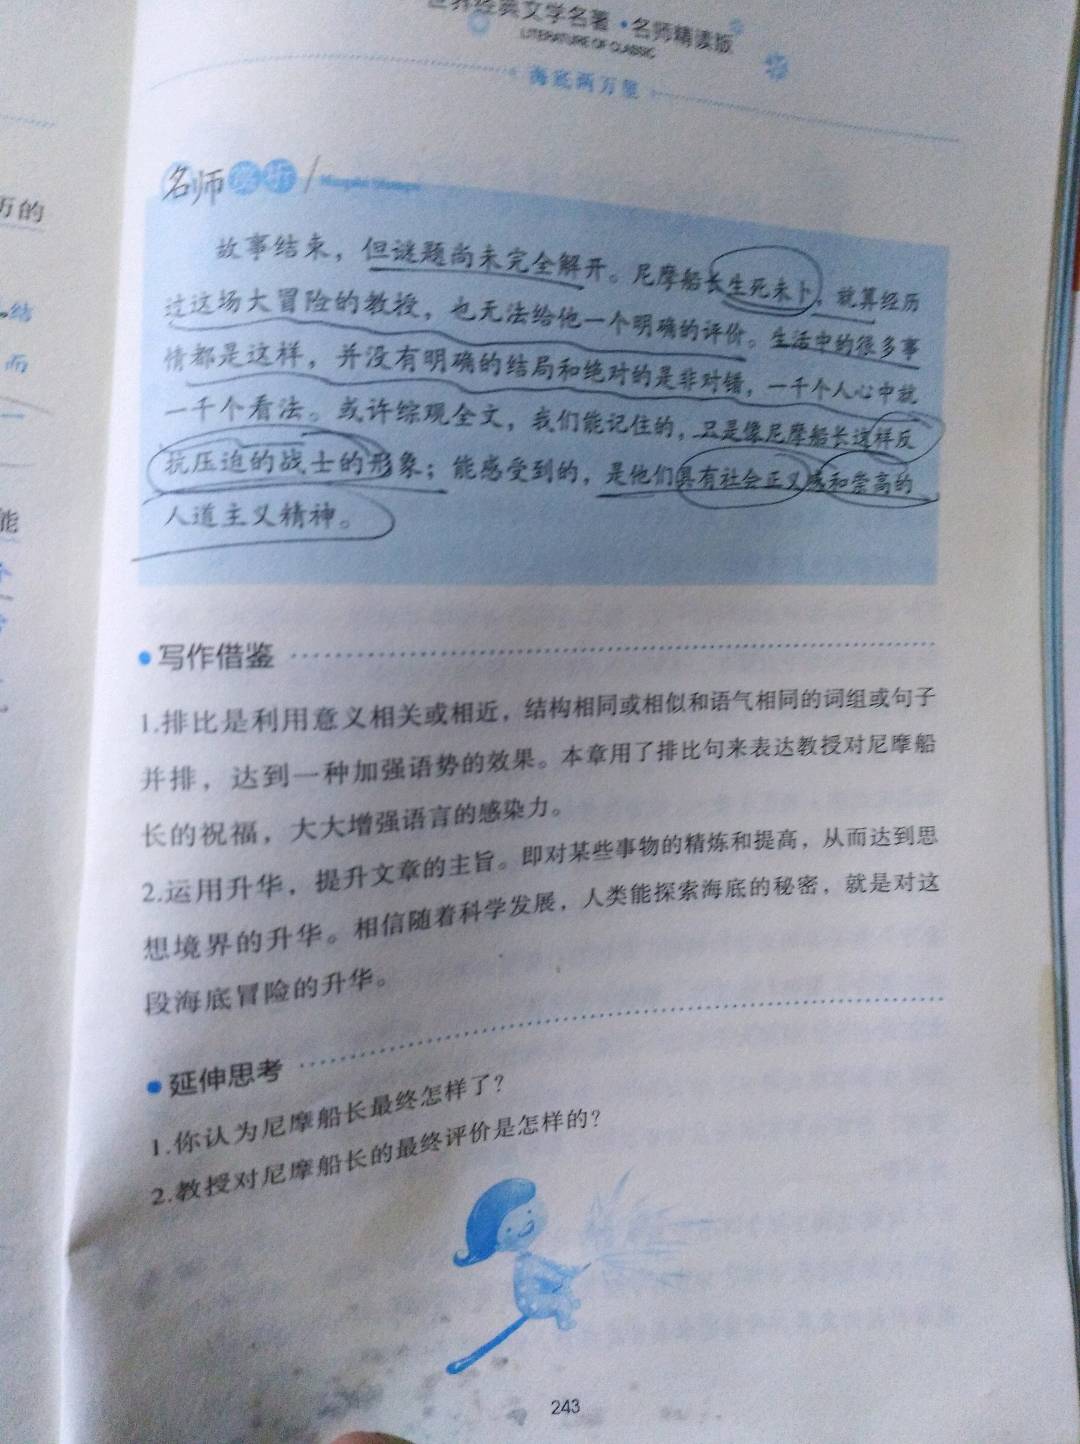 世界经典文学名著·名师精读版
LITERATURE OF CLASSIC
海底两万里
万的
结
而
一
能
名师赏析
故事结束，但谜题尚未完全解开。尼摩船长生死未卜，就算经历
过这场大冒险的教授，也无法给他一个明确的评价。生活中的很多事
情都是这样，并没有明确的结局和绝对的是非对错，一千个人心中就
一千个看法。或许综观全文，我们能记住的，只是像尼摩船长这样反
抗压迫的战士的形象；能感受到的，是他们具有社会正义感和崇高的
人道主义精神。
写作借鉴
1.排比是利用意义相关或相近，结构相同或相似和语气相同的词组或句子
并排，达到一种加强语势的效果。本章用了排比句来表达教授对尼摩船
长的祝福，大大增强语言的感染力。
2.运用升华，提升文章的主旨。即对某些事物的精炼和提高，从而达到思
想境界的升华。相信随着科学发展，人类能探索海底的秘密，就是对这
段海底冒险的升华。
延伸思考
1.你认为尼摩船长最终怎样了？
2.教授对尼摩船长的最终评价是怎样的？
243